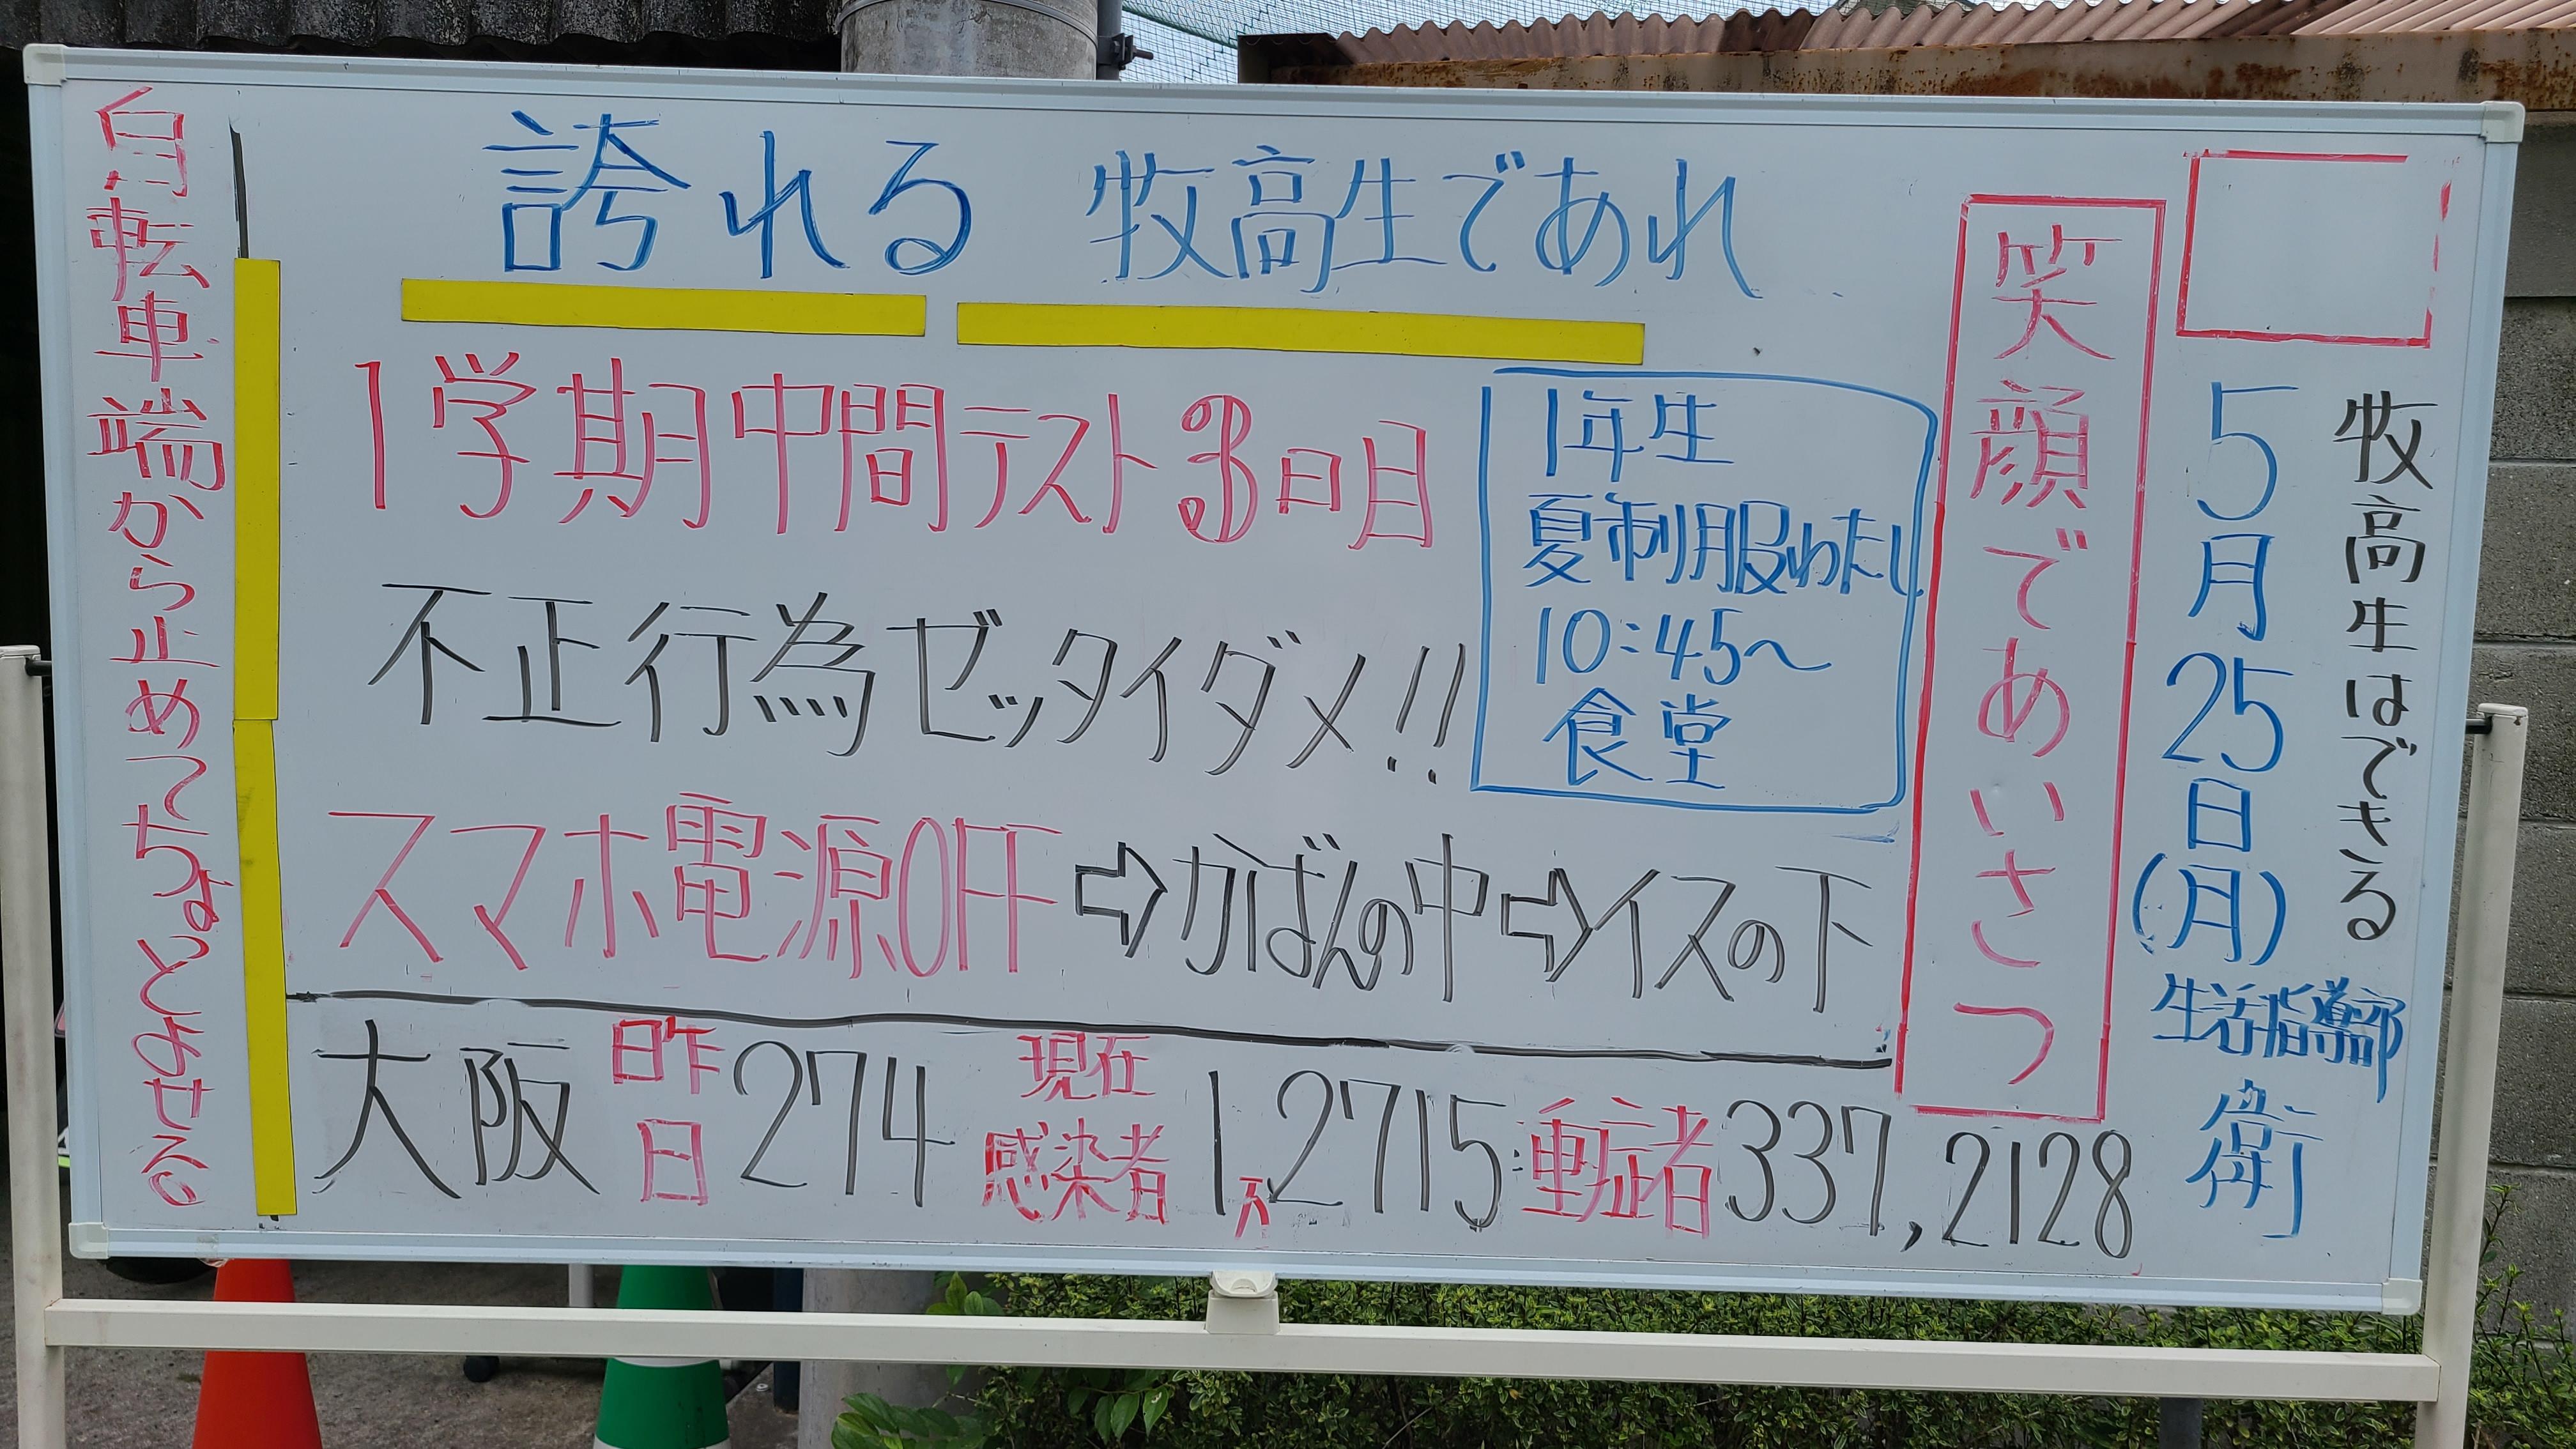 牧高生はできる
5月25日(月)
生活指導部
衛
笑顔であいさつ
誇れる 牧高生であれ
1学期中間テスト3日目
不正行為ゼッタイダメ!!
スマホ電源OFF⇨かばんの中⇨イスの下
1年生
夏制服わたし
10:45~
食堂
大阪 昨日 274 現在感染者 1万2715 重症者 337,2128
自転車端から止めてちょっとよせる。